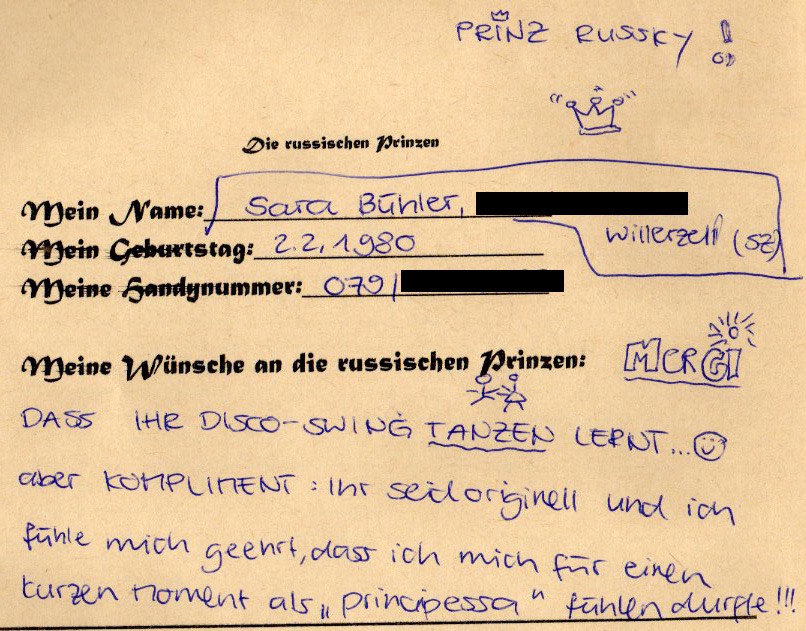 PRINZ RUSSKY !
Die russischen Prinzen
Mein Name: Sara Bühler,
Willerzell (SZ)
Mein Geburtstag: 2.2.1980
Meine Handynummer: 079/
Meine Wünsche an die russischen Prinzen:
MERCI
DASS IHR DISCO-SWING TANZEN LERNT...
aber KOMPLIMENT: Ihr seid originell und ich
fühle mich geehrt, dass ich mich für einen
kurzen Moment als „principessa“ fühlen durfte!!!